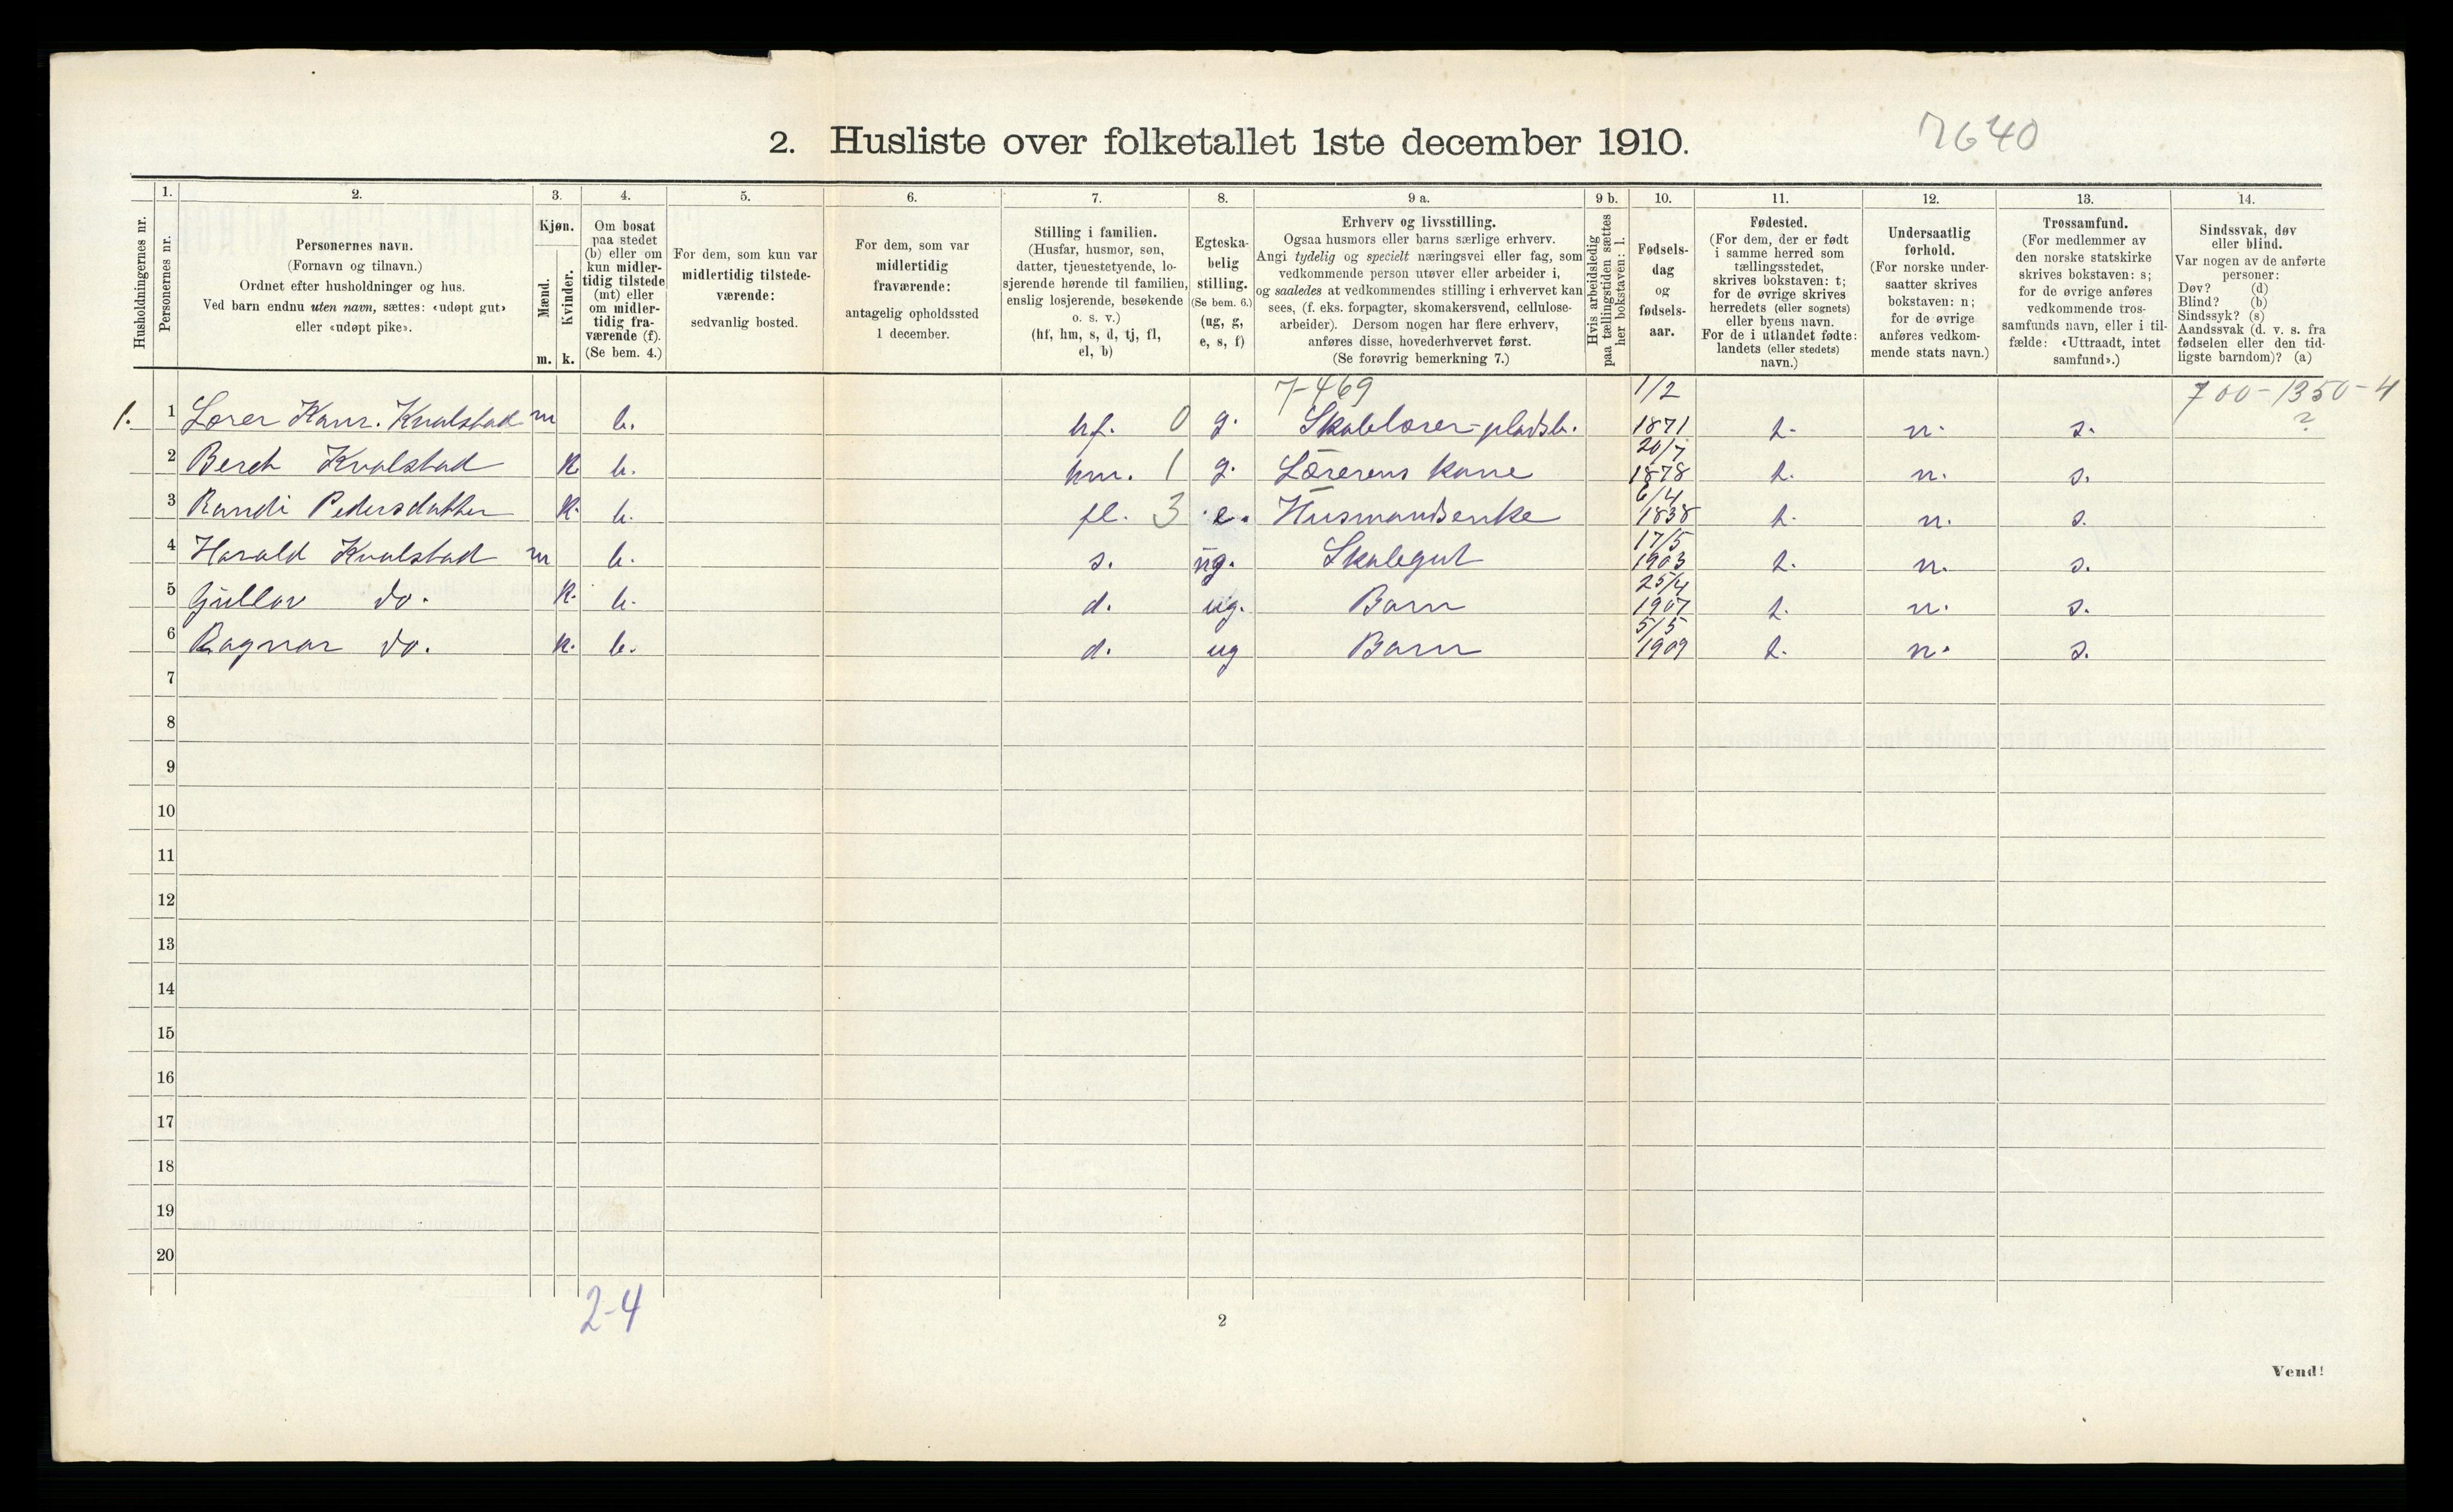 2. Husliste over folketallet 1ste december 1910.
7640
Husholdningernes nr.
1.
Personernes nr.
2.
Personernes navn.
(Fornavn og tilnavn.)
Ordnet efter husholdninger og hus.
Ved barn endnu uten navn, sættes: «udøpt gut»
eller «udøpt pike».
3.
Kjøn.
Mænd.
Kvinder.
m. k.
4.
Om bosat
paa stedet
(b) eller om
kun midler-
tidig tilstede
(mt) eller
om midler-
tidig fra-
værende (f).
(Se bem. 4.)
5.
For dem, som kun var
midlertidig tilstede-
værende:
sedvanlig bosted.
6.
For dem, som var
midlertidig
fraværende:
antagelig opholdssted
1 december.
7.
Stilling i familien.
(Husfar, husmor, søn,
datter, tjenestetyende, lo-
sjerende hørende til familien,
enslig losjerende, besøkende
o. s. v.)
(hf, hm, s, d, tj, fl,
el, b)
8.
Egteska-
belig
stilling.
(Se bem. 6.)
(ug, g,
e, s, f)
9 a.
Erhverv og livsstilling.
Ogsaa husmors eller barns særlige erhverv.
Angi tydelig og specielt næringsvei eller fag, som
vedkommende person utøver eller arbeider i,
og saaledes at vedkommendes stilling i erhvervet kan
sees, (f. eks. forpagter, skomakersvend, cellulose-
arbeider). Dersom nogen har flere erhverv,
anføres disse, hovederhvervet først.
(Se forøvrig bemerkning 7.)
9 b.
Hvis arbeidsledig
paa tællingstiden sættes
her bokstaven: l.
10.
Fødsels-
dag
og
fødsels-
aar.
11.
Fødested.
(For dem, der er født
i samme herred som
tællingsstedet,
skrives bokstaven: t;
for de øvrige skrives
herredets (eller sognets)
eller byens navn.
For de i utlandet fødte:
landets (eller stedets)
navn.)
12.
Undersaatlig
forhold.
(For norske under-
saatter skrives
bokstaven: n;
for de øvrige
anføres vedkom-
mende stats navn.)
13.
Trossamfund.
(For medlemmer av
den norske statskirke
skrives bokstaven: s;
for de øvrige anføres
vedkommende tros-
samfunds navn, eller i til-
fælde: «Uttraadt, intet
samfund».)
14.
Sindssvak, døv
eller blind.
Var nogen av de anførte
personer:
Døv? (d)
Blind? (b)
Sindssyk? (s)
Aandssvak (d. v. s. fra
fødselen eller den tid-
ligste barndom)? (a)
7-469 1/2 700-1350-4
1. 1 Kvalstad m b. hf. 0 g. Skolelærer-pladsb. 1871 t. n. s. ?
20/7
2 Kvalstad k b. hm. 1 g. Lærerens kone 1878 t. n. s.
6/4
3 Randi Pedersdatter k. b. fl. 3 e. Husmandsenke 1838 t. n. s.
17/5
4 Harald Kvalstad m b. s. ug. Skolegut 1903 t. n. s.
25/4
5 Gullov do. k. b. d. ug. Barn 1907 t. n. s.
5/5
6 Ragnar do. k. b. d. ug Barn 1909 t. n. s.
7
8
9
10
11
12
13
14
15
16
17
18
19
20
2-4
2
Vend!